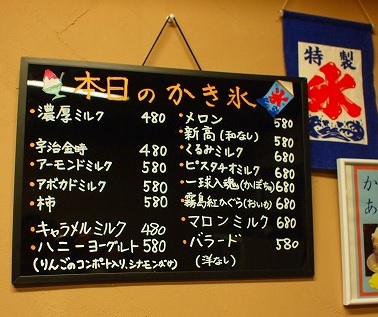 本日のかき氷
・濃厚ミルク 480
・宇治金時 480
・アーモンドミルク 580
・アボカドミルク 580
・柿 580
・キャラメルミルク 480
・ハニーヨーグルト 580
(りんごのコンポート入り、シナモン
・メロン 580
・新高(和なし) 580
・くるみミルク 680
・ピスタチオミルク 680
・一球入魂(かぼちゃ) 680
・霧島紅かぐら(おいも) 680
・マロンミルク 680
・バラード 580
(洋なし)
特製
氷
か
あ